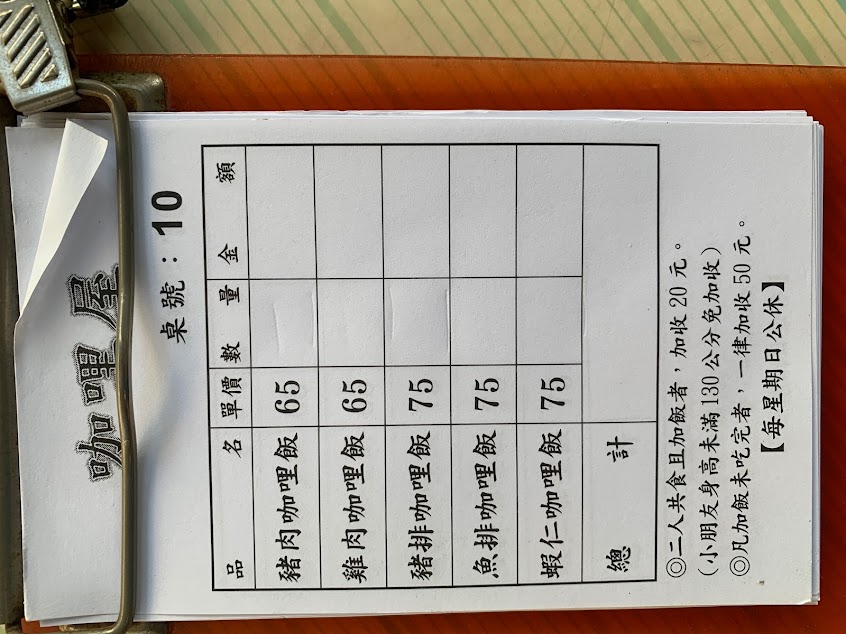 咖哩屋
桌號：10
品名 單價 數量 金額
豬肉咖哩飯 65
雞肉咖哩飯 65
豬排咖哩飯 75
魚排咖哩飯 75
蝦仁咖哩飯 75
總計
◎二人共食且加飯者，加收20元。
（小朋友身高未滿130公分免加收）
◎凡加飯未吃完者，一律加收50元。
【每星期日公休】